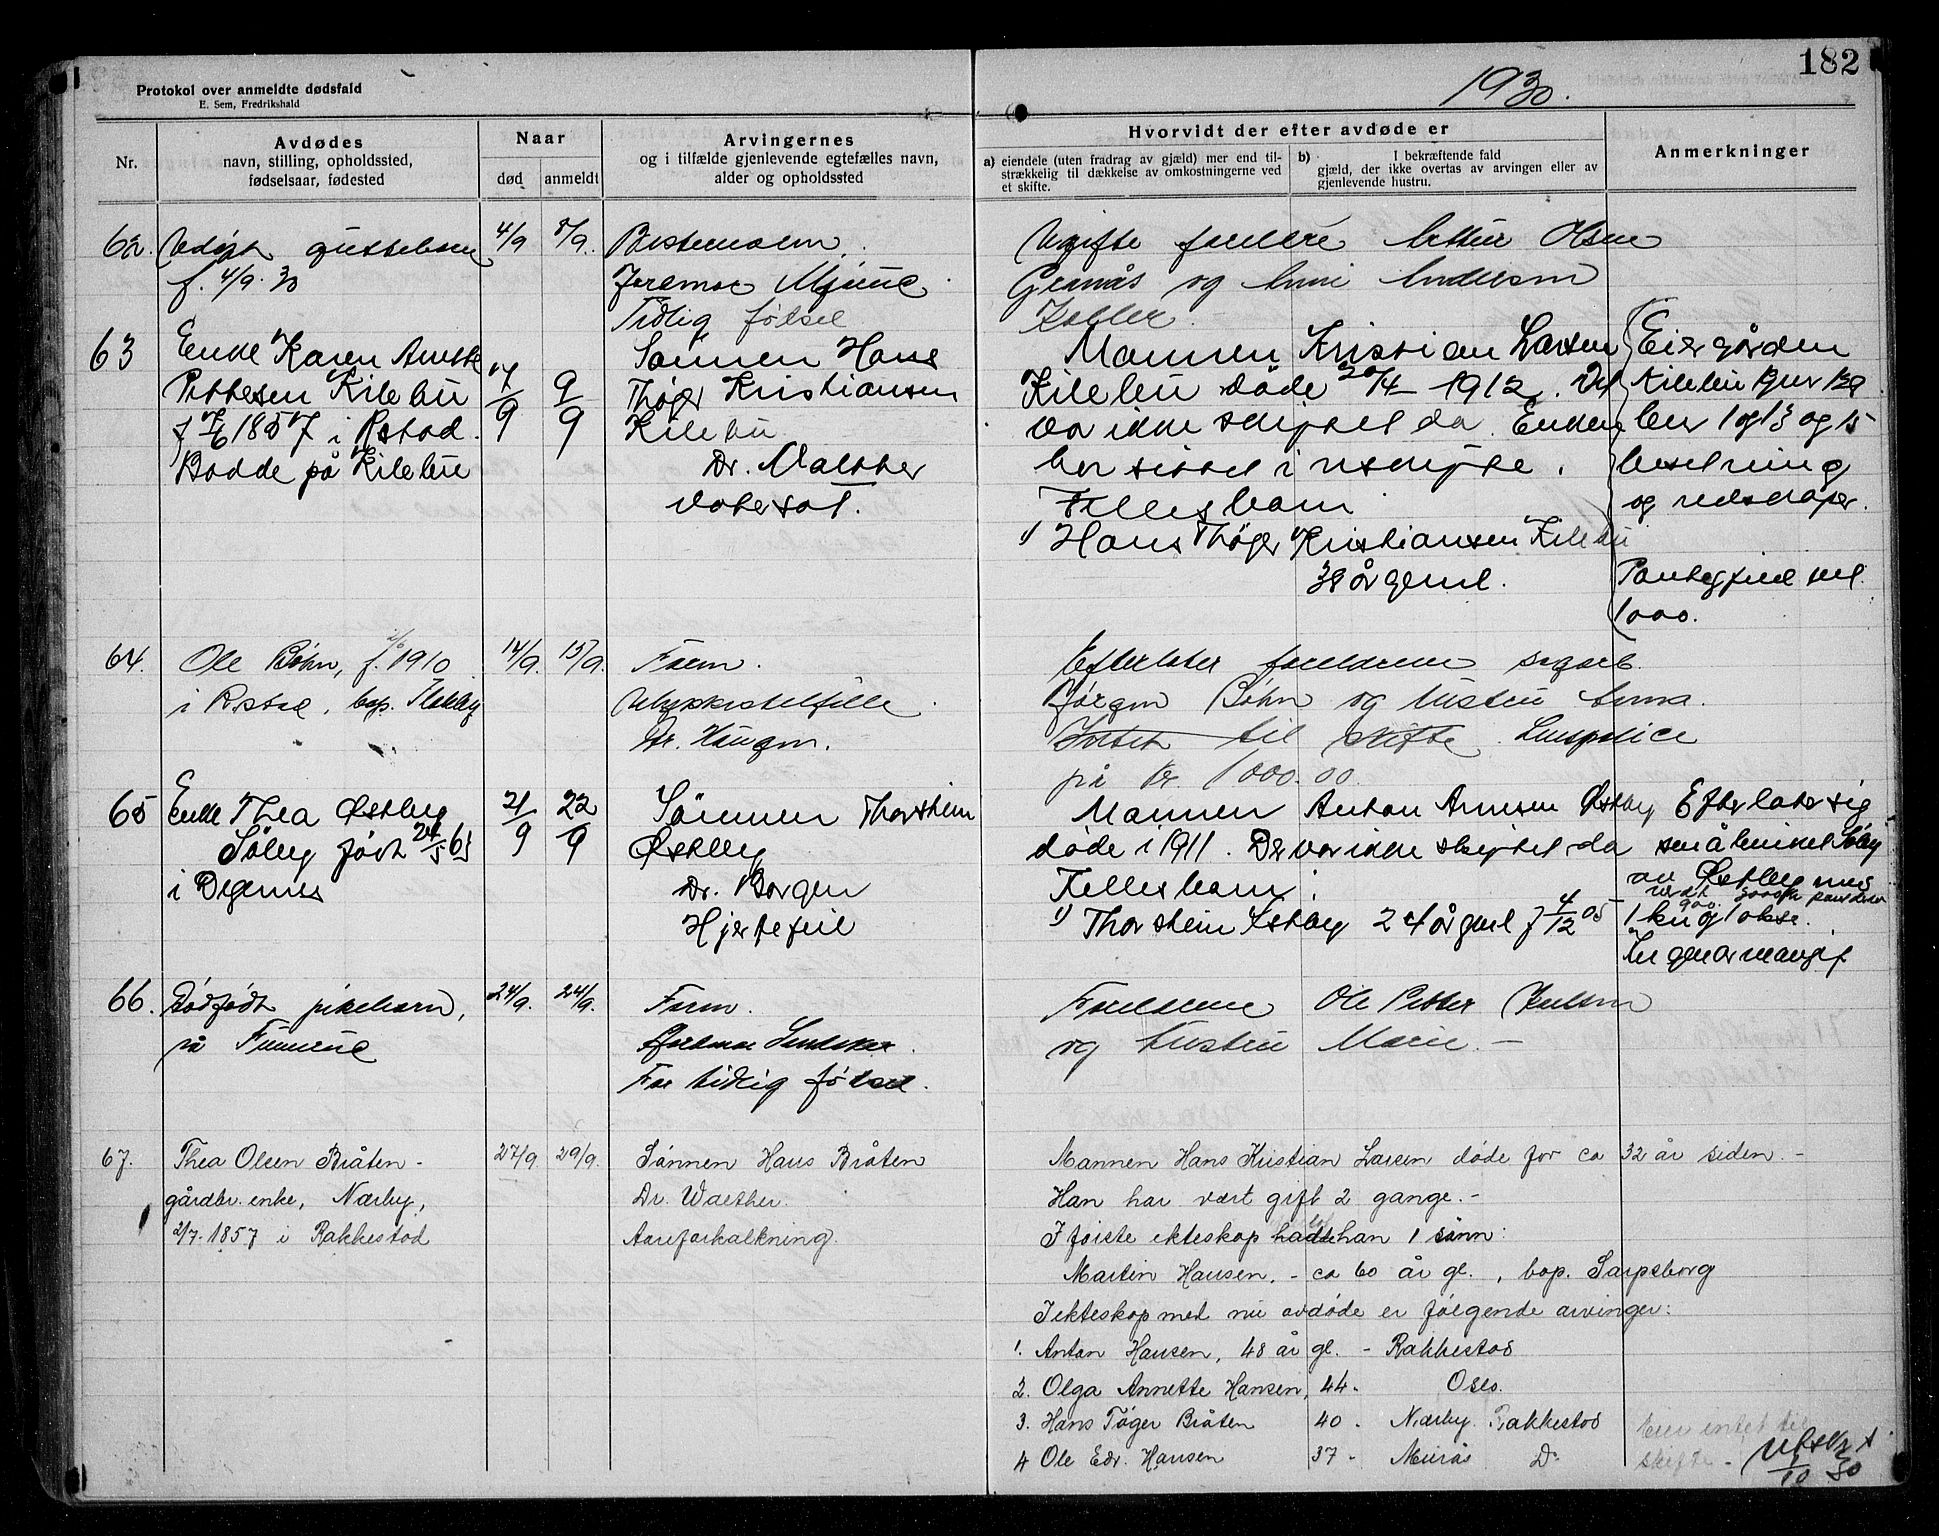 182
1930.
Protokol over anmeldte dødsfald
E. Sem, Fredrikshald
Nr.
Avdødes
navn, stilling, opholdssted,
fødselsaar, fødested
Naar
død
anmeldt
Arvingernes
og i tilfælde gjenlevende egtefælles navn,
alder og opholdssted
Hvorvidt der efter avdøde er
a) eiendele (uten fradrag av gjæld) mer end til-
strækkelig til dækkelse av omkostningerne ved
et skifte.
b) I bekræftende fald
gjæld, der ikke overtas av arvingen eller av
gjenlevende hustru.
Anmerkninger
62. Udøpt guttebarn
f. 4/9. 30
4/9
5/9.
Bestemoren.
Jormor
Tidlig fødsel
Ugifte foreldre Olsen
og Anni Andersen
63
Enke Karen
Pettersen Kilebu
1857 i Rstad.
Bodde på Kilebu
9/9
Sønnen Hans
Thøger Kristiansen
Kilebu
Dr. Walther
Mannen Kristian Larsen
Kilebu døde 20/4 – 1912. Det
va ikke skiftet da. Enken
har sittet i uskifte.
Felles barn
1) Hans Thøger Kristiansen Kilebu
38 år geml.
Eier gården
Kilebu gnr 129
bnr 1 og 13 og 15
besetning
og redskaper.
Pantegjeld vel
1000.
64.
Ole Bøhn, f. 1910
i Rstad, bop.
14/9.
15/9.
Faren.
Ulykkestilfelle.
Dr. Haugen.
Efterlater foreldrene
Jørgen Bøhn og hustru Anna.
Intet til skifte. Livspolice
på kr. 1000.00.
65
Enke Thea Østby
Søby født 24/5 65
i Degernes
21/9
22/9
Sønnen Thorstein
Østby
Dr. Borgen
Hjertefeil
Mannen Anton Arnesen Østby
døde i 1911. Der var ikke skiftet da
Felles barn:
1) Thorstein Østby 24 år geml f 4/12 05
Efterlater sig
småbruket Søby
av Østby med
1 ku og 1 okse.
66.
Dødfødt pikebarn,
24/9.
24/9.
Faren.
For tidlig fødsel.
Foreldrene Ole Petter
og hustru Marie. –
67.
Thea Olsen Bråten –
gårdbr. enke, Nærby,
2/7-1857 i Rakkestad
27/9.
29/9.
Sønnen Hans Bråten
Dr. Walther.
Aareforkalkning.
Mannen Hans Kristian Larsen døde for ca 32 år siden. –
Han har vært gift 2 gange. –
I første ekteskap hadde han 1 sønn:
Martin Hansen, – ca 60 år gl., bop. Sarpsborg
I ekteskap med nu avdøde er følgende arvinger:
1. Anton Hansen, 48 år gl. – Rakkestad
2. Olga Annette Hansen, 44 – Oslo.
3. Hans Tøger Bråten 40 – Nærby. Rakkestad
4 Ole Edv. Hansen 37 – D–
Eier intet til
skifte –